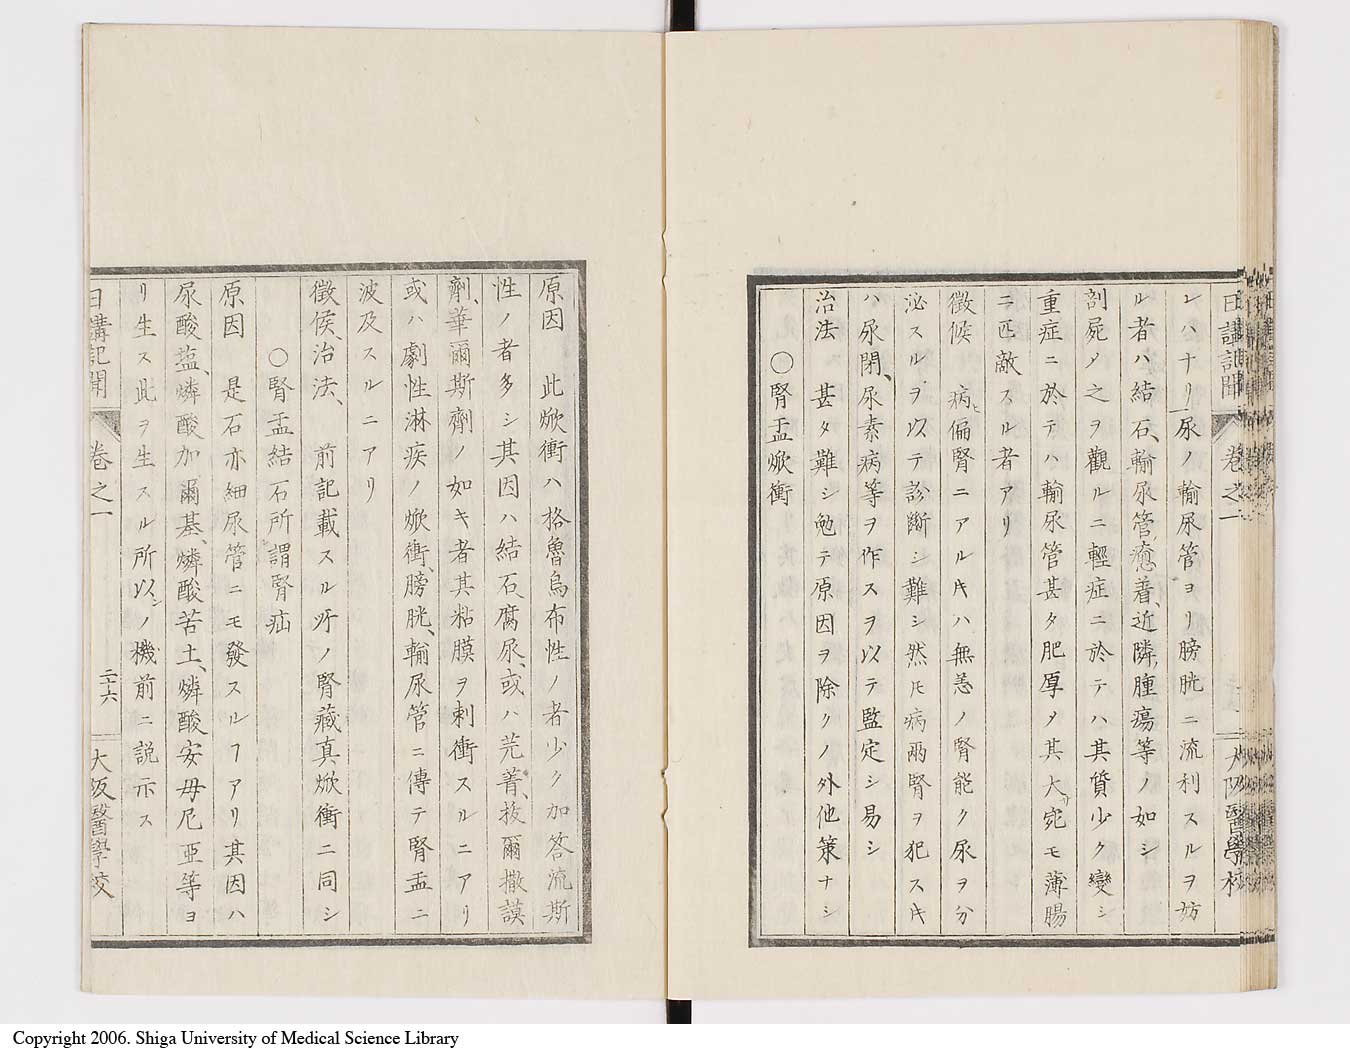 日講記聞 卷之一 大阪醫學校
レハナリ尿ノ輸尿管ヨリ膀胱ニ流利スルヲ妨
ル者ハ結石、輸尿管癒着、近隣腫瘍等ノ如シ
剖屍〆之ヲ觀ルニ輕症ニ於テハ其質少ク變シ
重症ニ於テハ輸尿管甚タ肥厚〆其大サ宛モ薄腸
ニ匹敵スル者アリ
徴候 病ヒ偏腎ニアル𬼀ハ無恙ノ腎能ク尿ヲ分
泌スルヲ以テ診斷シ難シ然𪜈病兩腎ヲ犯ス𬼀
ハ尿閉、尿素病等ヲ作スヲ以テ監定シ易シ
治法 甚タ難シ勉テ原因ヲ除クノ外他策ナシ
〇腎盂焮衝
原因 此焮衝ハ格魯烏布性ノ者少ク加答流斯
性ノ者多シ其因ハ結石、腐尿、或ハ芫菁、拔爾撒謨
劑、華爾斯劑ノ如キ者其粘膜ヲ刺衝スルニアリ
或ハ劇性淋疾ノ焮衝、膀胱、輸尿管ニ傳テ腎盂ニ
波及スルニアリ
徴候、治法、 前記載スル所ノ腎藏真焮衝ニ同シ
〇腎盂結石所謂腎疝
原因 是石亦細尿管ニモ發スルヿアリ其因ハ
尿酸塩、燐酸加爾基、燐酸苦土、燐酸安母尼亞等ヨ
リ生ス此ヲ生スル所以ンノ機前ニ説示ス
日講記聞 卷之一 二十六 大阪醫學校
Copyright 2006. Shiga University of Medical Science Library